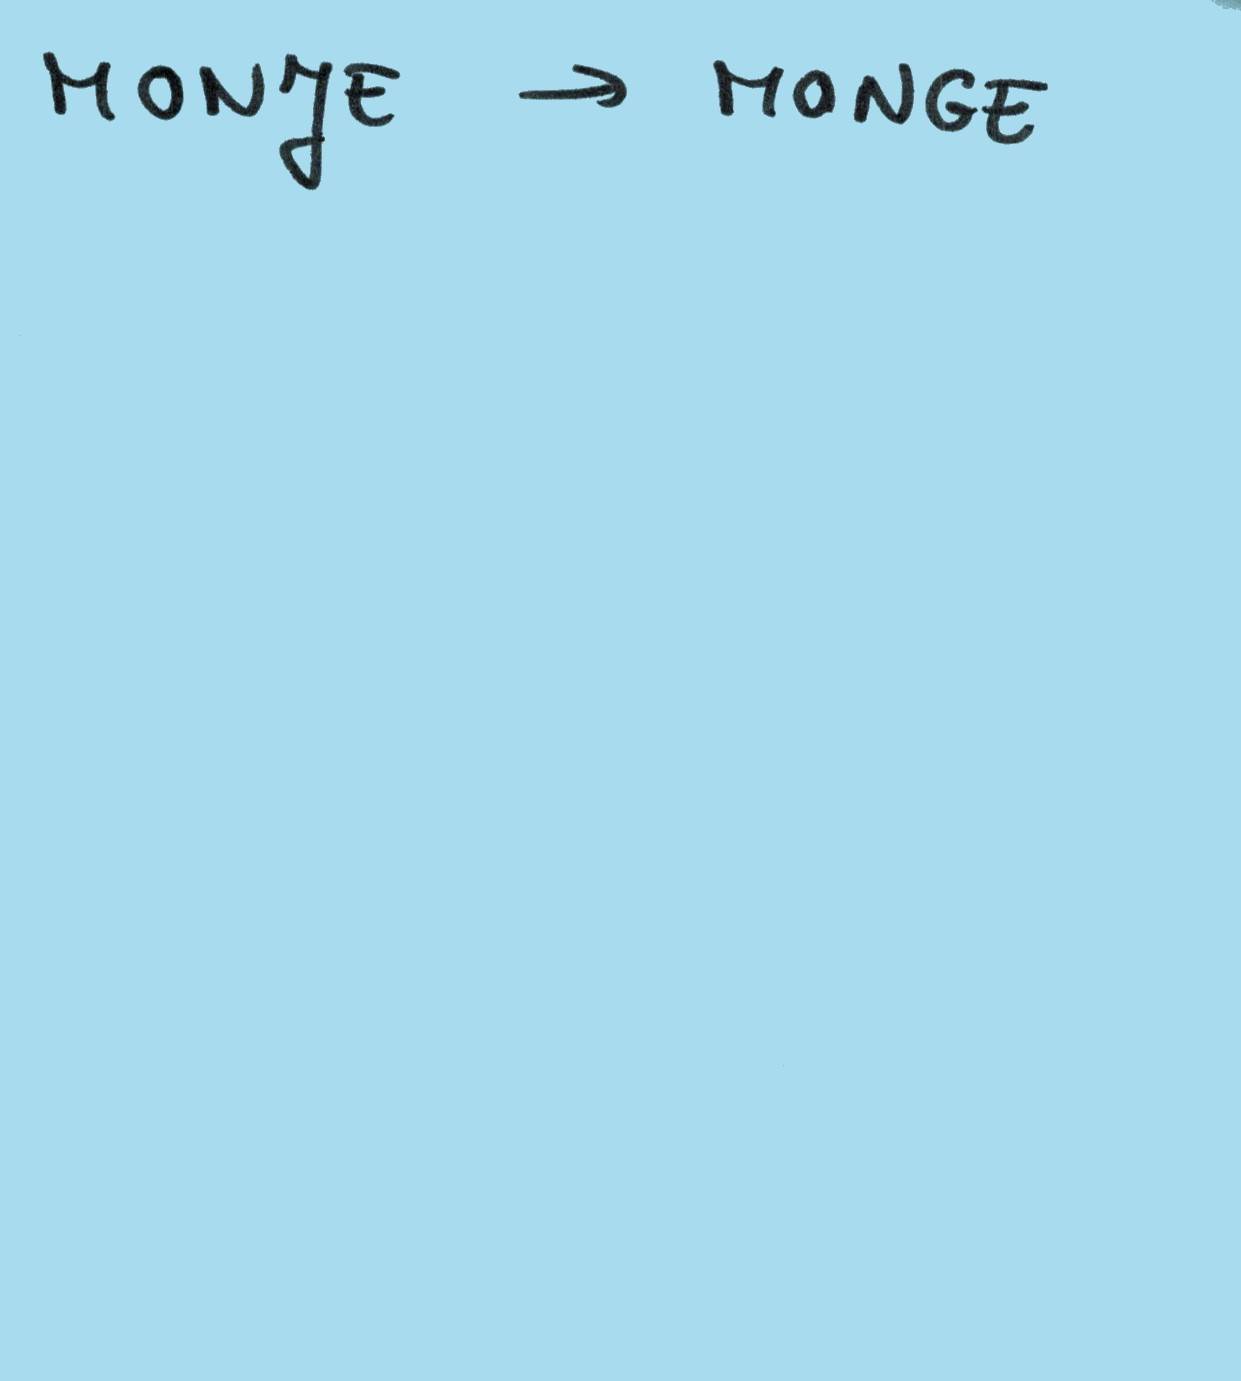 MONJE → MONGE